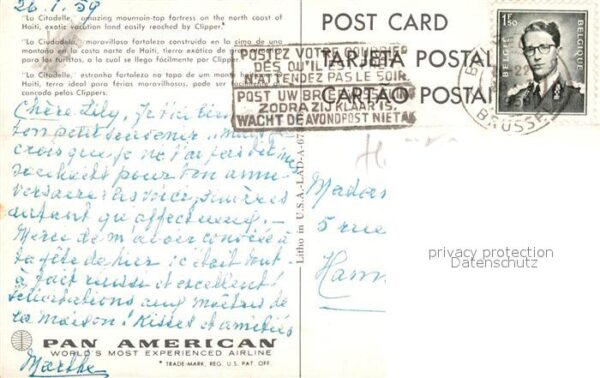 26.1.59
"La Citadelle," amazing mountain-top fortress on the north coast of
Haiti, exotic vacation land easily reached by Clipper.*
"La Ciudadela," maravillosa fortaleza construida en la cima de una
montaña en la costa norte de Haití, uno de los
para turistas, a la cual se llega fácilmente por Clipper.
"La Citadelle," estranha fortaleza no topo de um
Haiti, terra de férias maravilhosas, pode ser
cada pelos Clippers.
POST CARD
TARJETA POSTAL
CARTÃO POSTAL
POSTEZ VOTRE COURRIER
DÈS QU'IL EST
N'ATTENDEZ PAS LE SOIR.
POST UW BRIEFWISSELING
ZODRA ZIJ KLAAR IS.
WACHT DE AVONDPOST NIET AF
1F50
BELGIE BELGIQUE
22
BRUSSEL
Chère Lily, Je t'ai
ton petit souvenir mais
crois que je ne t'ai pas dit mes
souhaits pour ton anni-
versaire: les voici, sincères
autant que affectueux. -
Merci de m'avoir conviée à
la fête de hier: c'était tout-
à-fait réussi et excellent!
Félicitations aux maîtres de
la maison! Kisses et amitiés
Marthe
Litho in U.S.A.-LAD-A-67
Madam
5 rue
Ham
privacy protection
Datenschutz
PAN AMERICAN
WORLD'S MOST EXPERIENCED AIRLINE
* TRADE-MARK, REG. U.S. PAT. OFF.